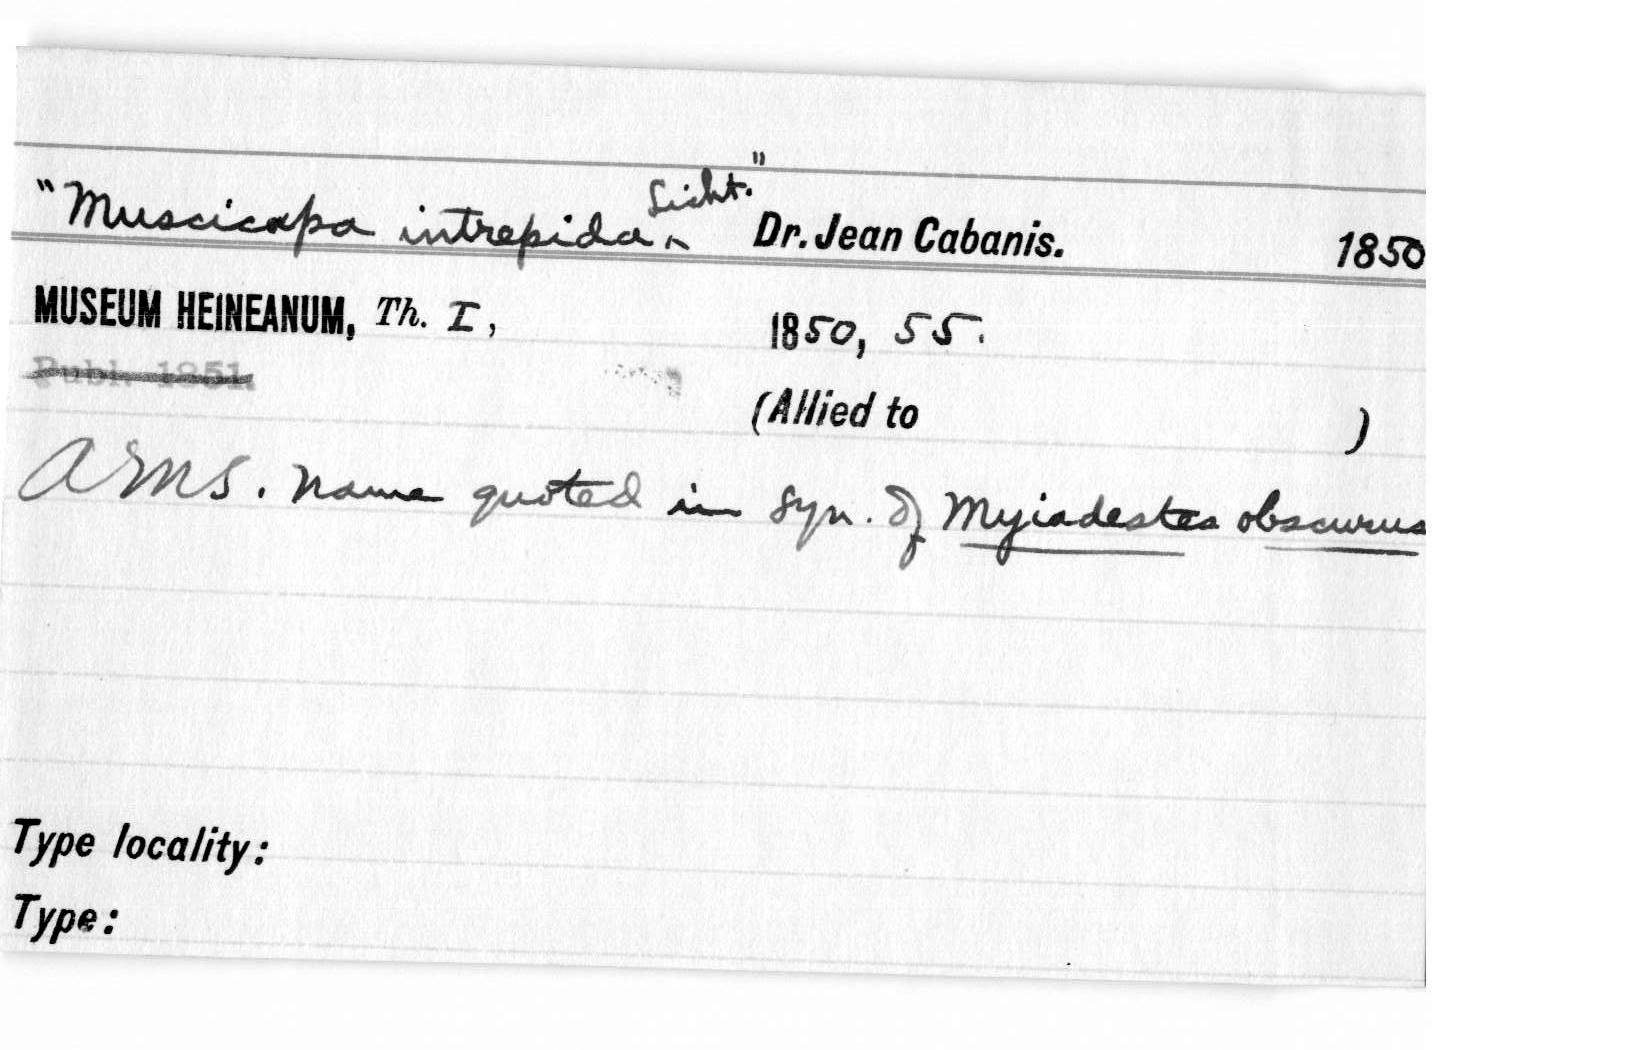 "Muscicapa intrepida ^ Licht." Dr. Jean Cabanis. 1850
MUSEUM HEINEANUM, Th. I, 1850, 55.
Publ. 1851.
(Allied to )
A MS. name quoted in syn. of Myiadestes obscurus
Type locality:
Type: